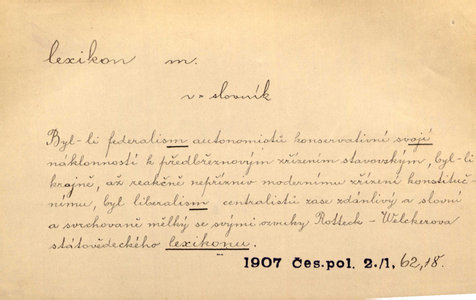 lexikon m.
v = slovník
Byl-li federalism autonomistů konservativní svojí
náklonností k předbřeznovým zřízením stavovským, byl-li
krajně, až reakčně nepřízniv modernímu zřízení konstituč-
nímu, byl liberalism centralistů zase zdánlivý a slovní
a svrchovaně mělký se svými ozvuky Rotteck-Welckerova
státovědeckého lexikonu.
1907 Čes. pol. 2./1, 62,18.